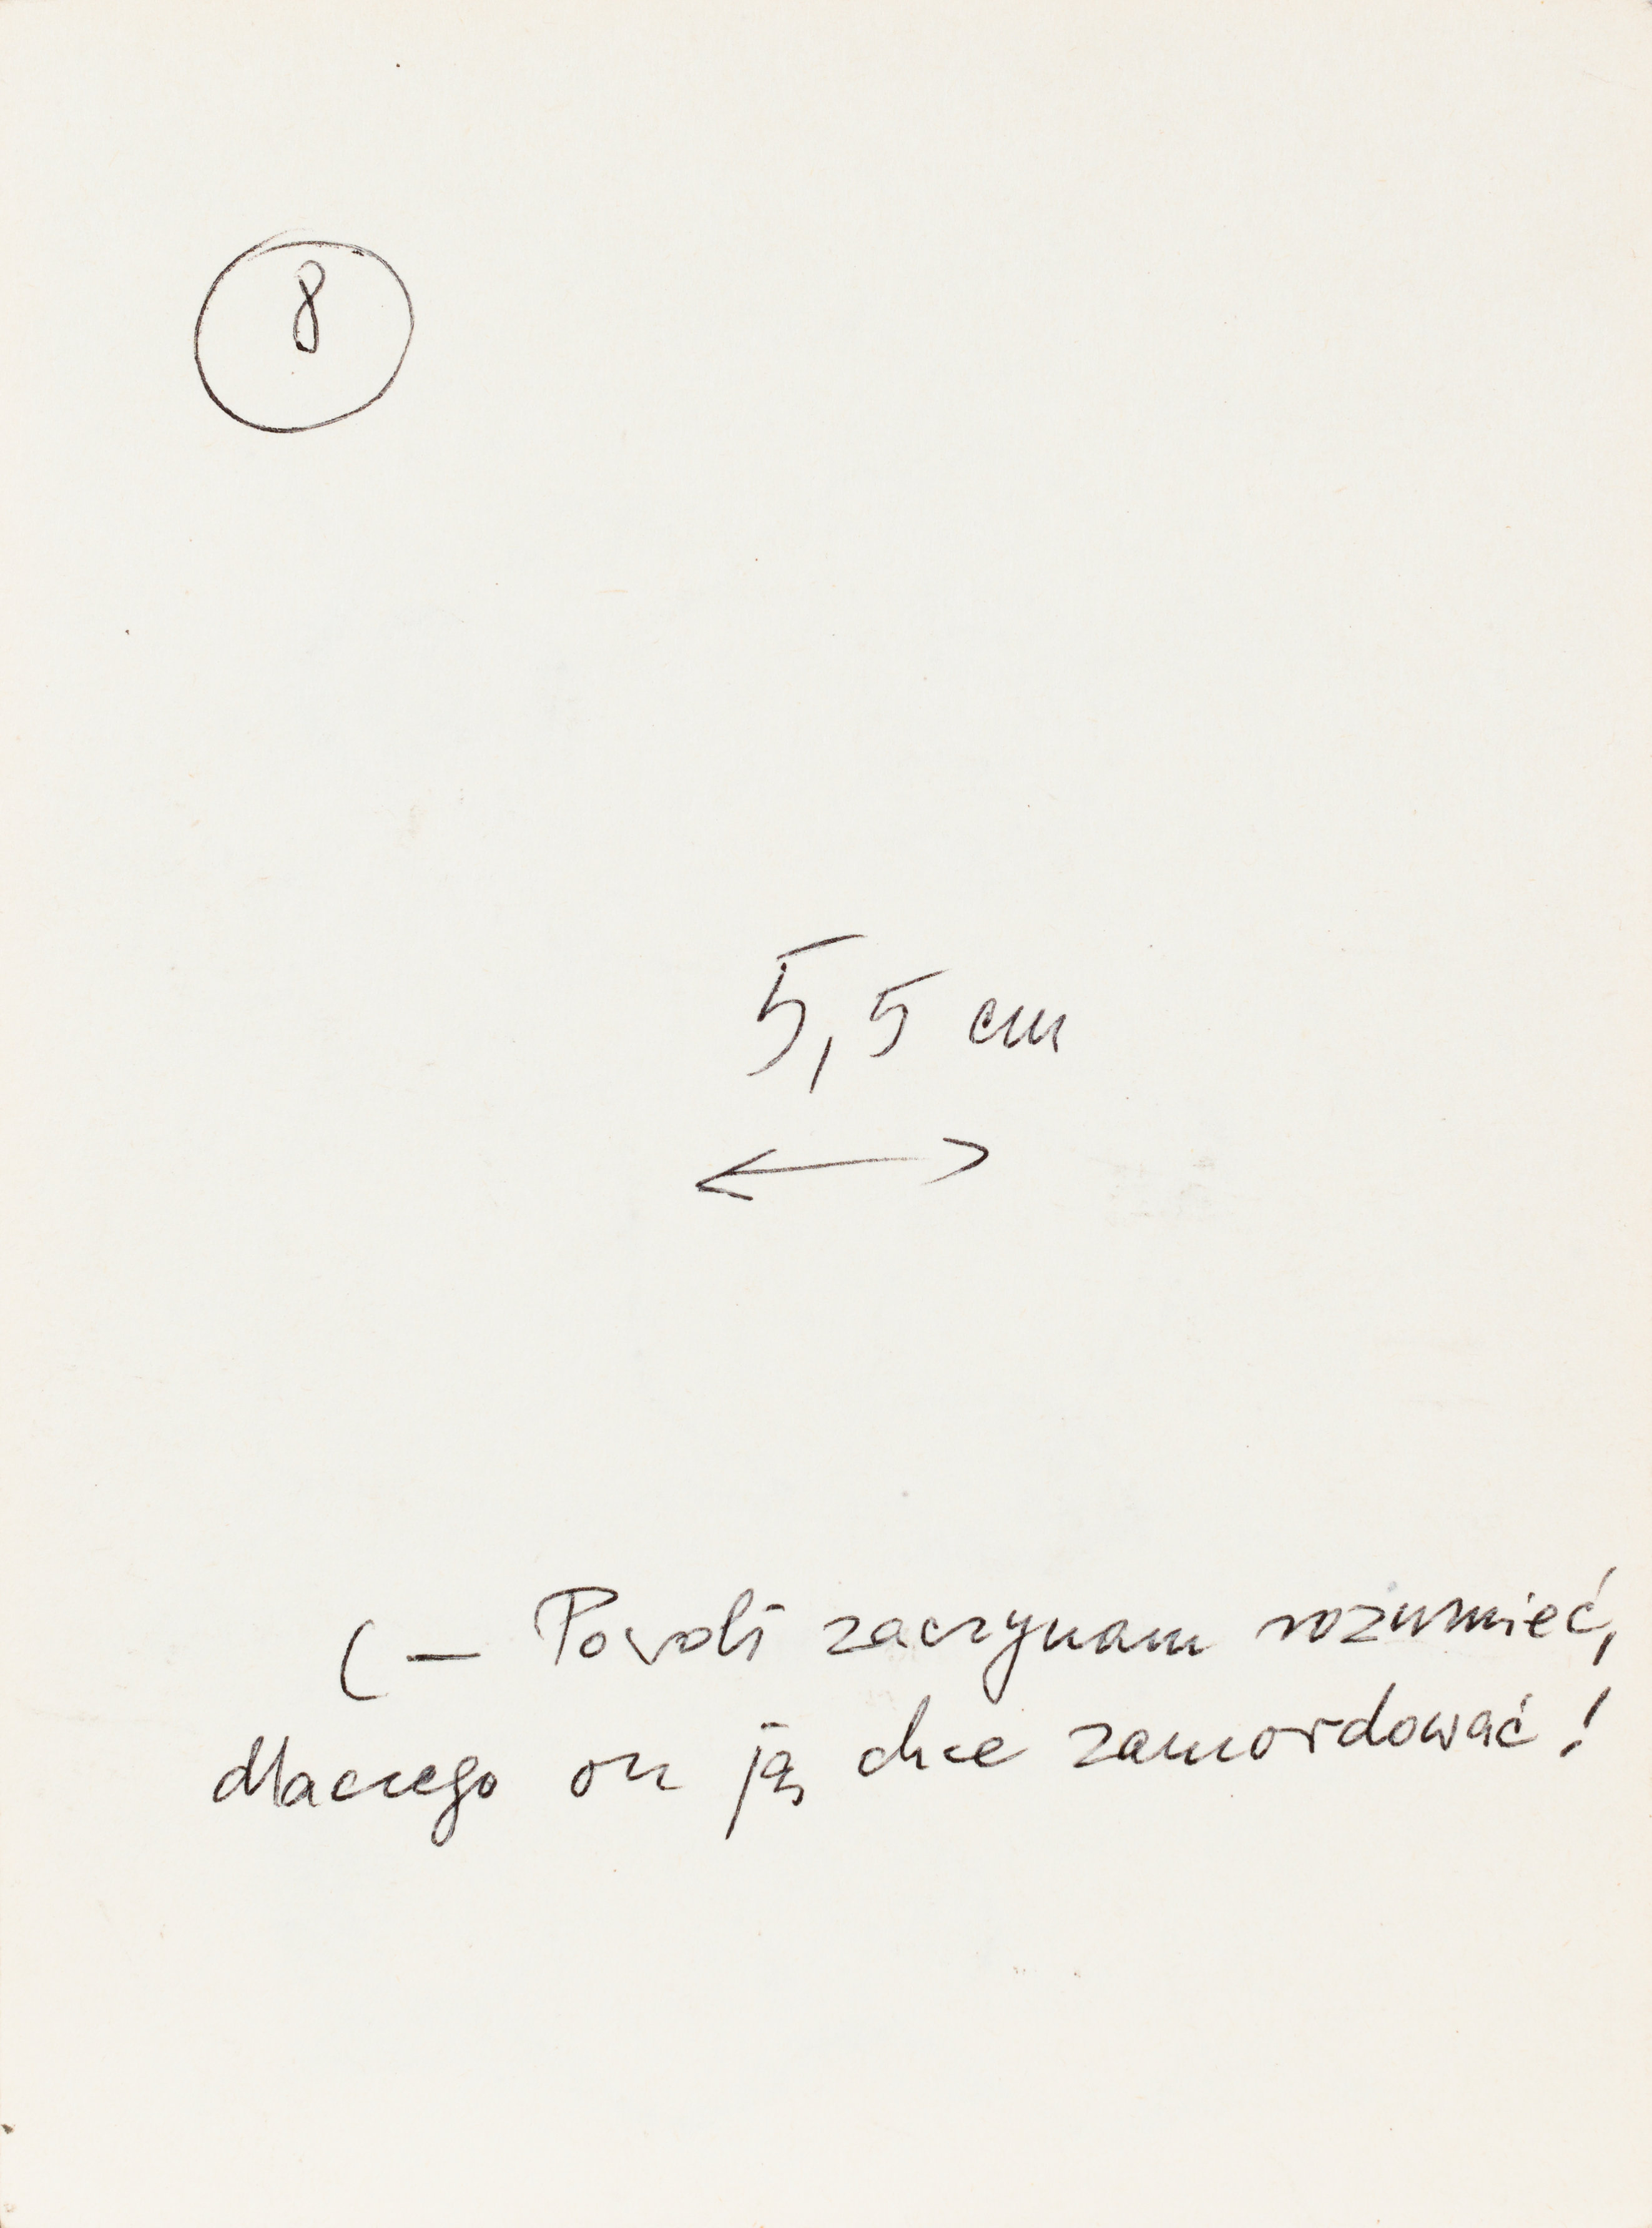 8
5,5 cm
(— Powoli zaczynam rozumieć,
dlaczego on ją chce zamordować!